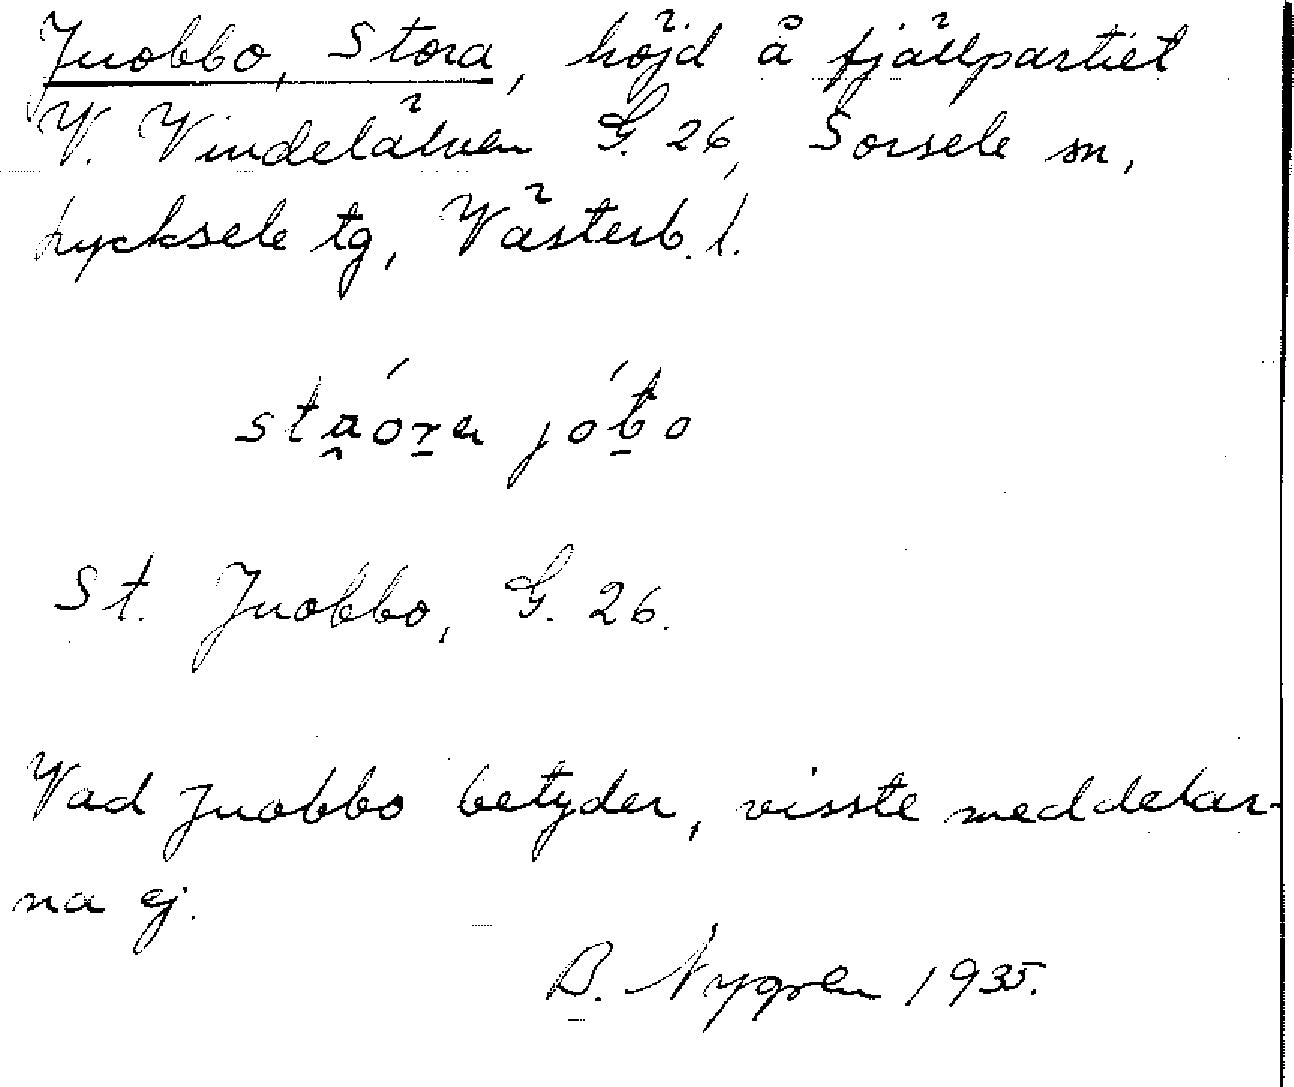 Juobbo, Stora, höjd å fjällpartiet
V. Vindelälven G. 26, Sorsele sn,
Lycksele tg, Västerb. l.
St. Juobbo, G. 26.
Vad Juobbo betyder, visste meddelar-
na ej.
B. Nygren 1935.